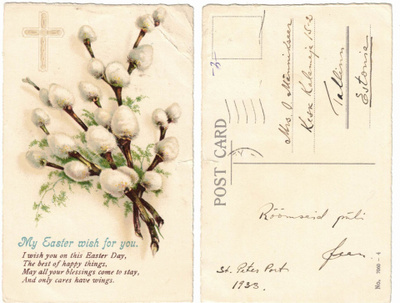 My Easter wish for you.
I wish you on this Easter Day,
The best of happy things,
May all your blessings come to stay,
And only cares have wings.
POST CARD
Mrs. O
Kesk
Tallinn
Estonia
Rõõmsaid pühi
St. Peter Port
1933
No.